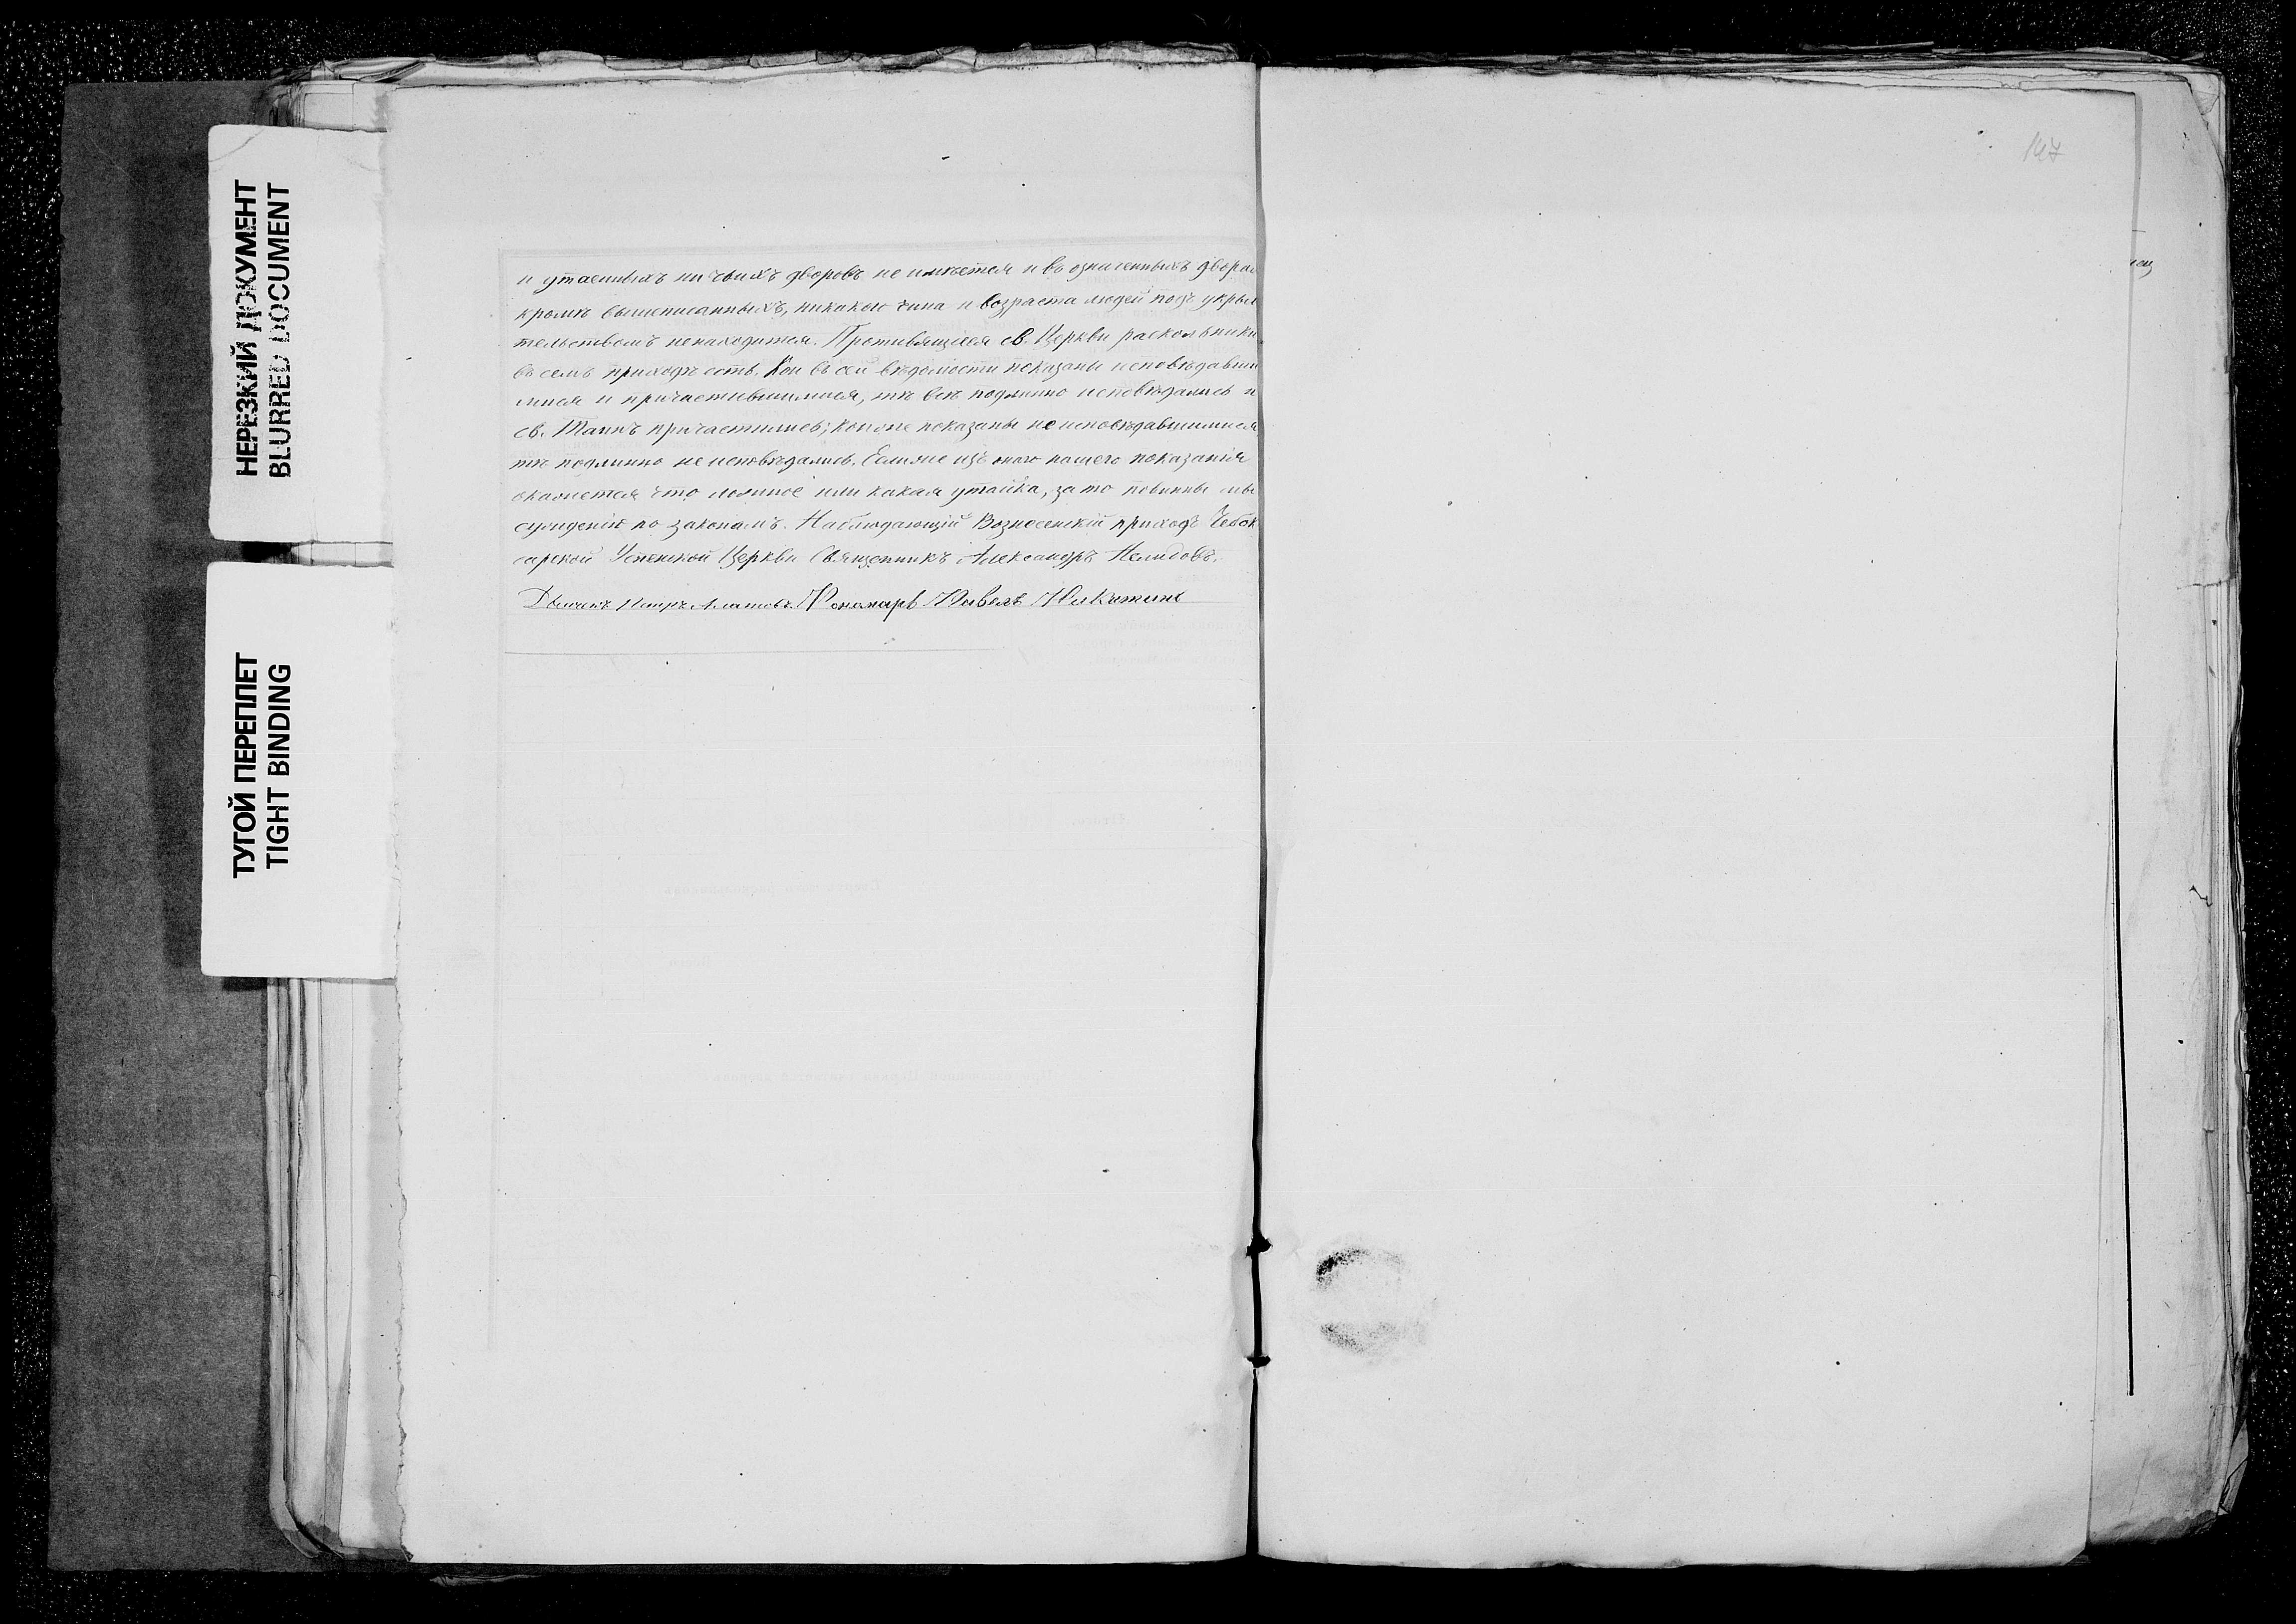 НЕРЕЗКИЙ ДОКУМЕНТ
BLURRED DOCUMENT
ТУГОЙ ПЕРЕПЛЕТ
TIGHT BINDING
и утаенныхъ ни чьихъ дворовъ не имѣется и въ означенныхъ двора
кромѣ вышеписанныхъ, никакого чина и возраста людей подъ укрыв
тельствомъ ненаходится. Противящіеся св. Церкви раскольники
въ семъ приходѣ есть. Кои въ сей вѣдомости показаны исповѣдавши
мися и причастившимися, тѣ всѣ подлинно исповѣдались и
св. Таинъ причастились; кои же показаны не исповѣдавшимися
тѣ подлинно не исповѣдались. Если же изъ сего нашего показанія
окажется что ложное или какая утайка, за то повинны мы
сужденію по законамъ. Наблюдающій Вознесенскій приходъ Чебок
сарской Успенской Церкви Священникъ Александръ Нелидовъ.
Дьячекъ Петръ Пономарь Павелъ Никитинъ
147